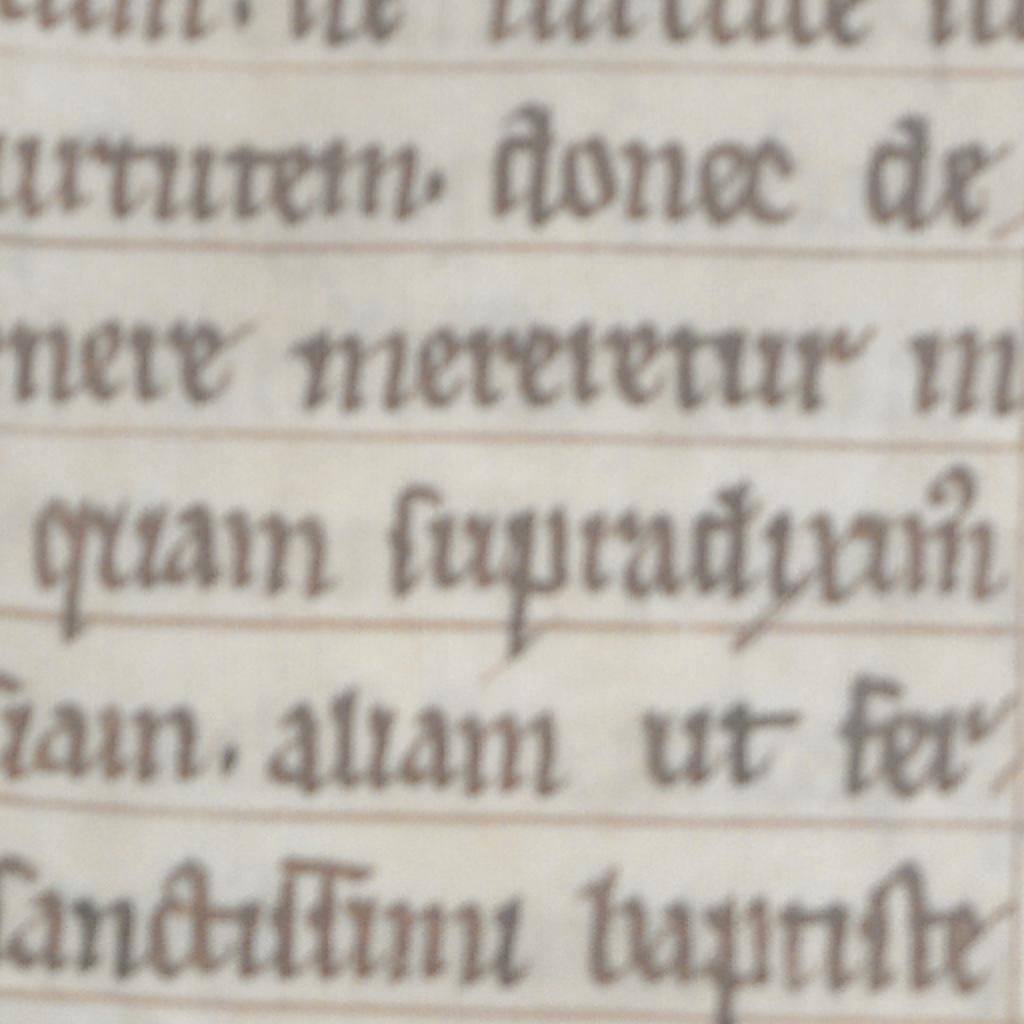 uirtutem. donec de
nere mereretur in
quam supradixim᾿
iam. aliam ut fer
sanctissimi baptiste